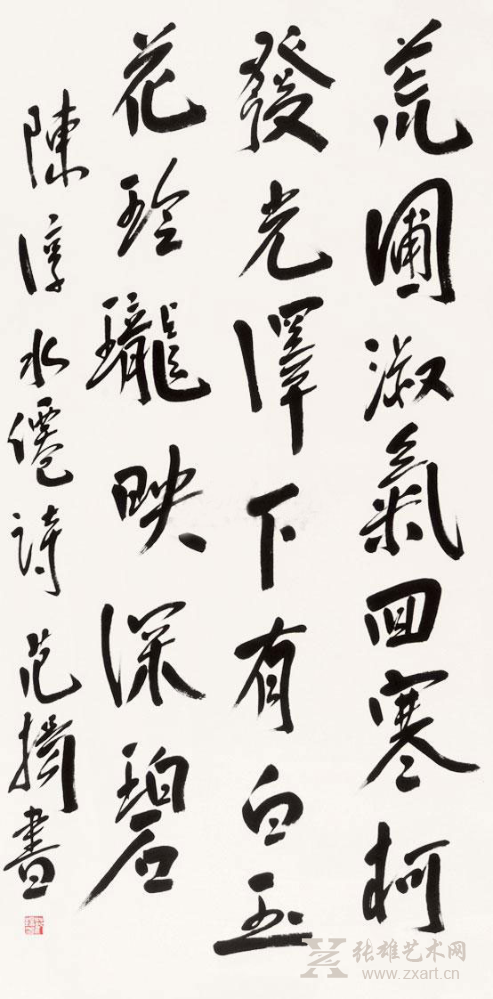 荒圃淑氣回寒柯
發光澤下有白玉
花玲瓏映深碧
陳淳水僊詩 范揚書
张雄艺术网
www.zxart.cn